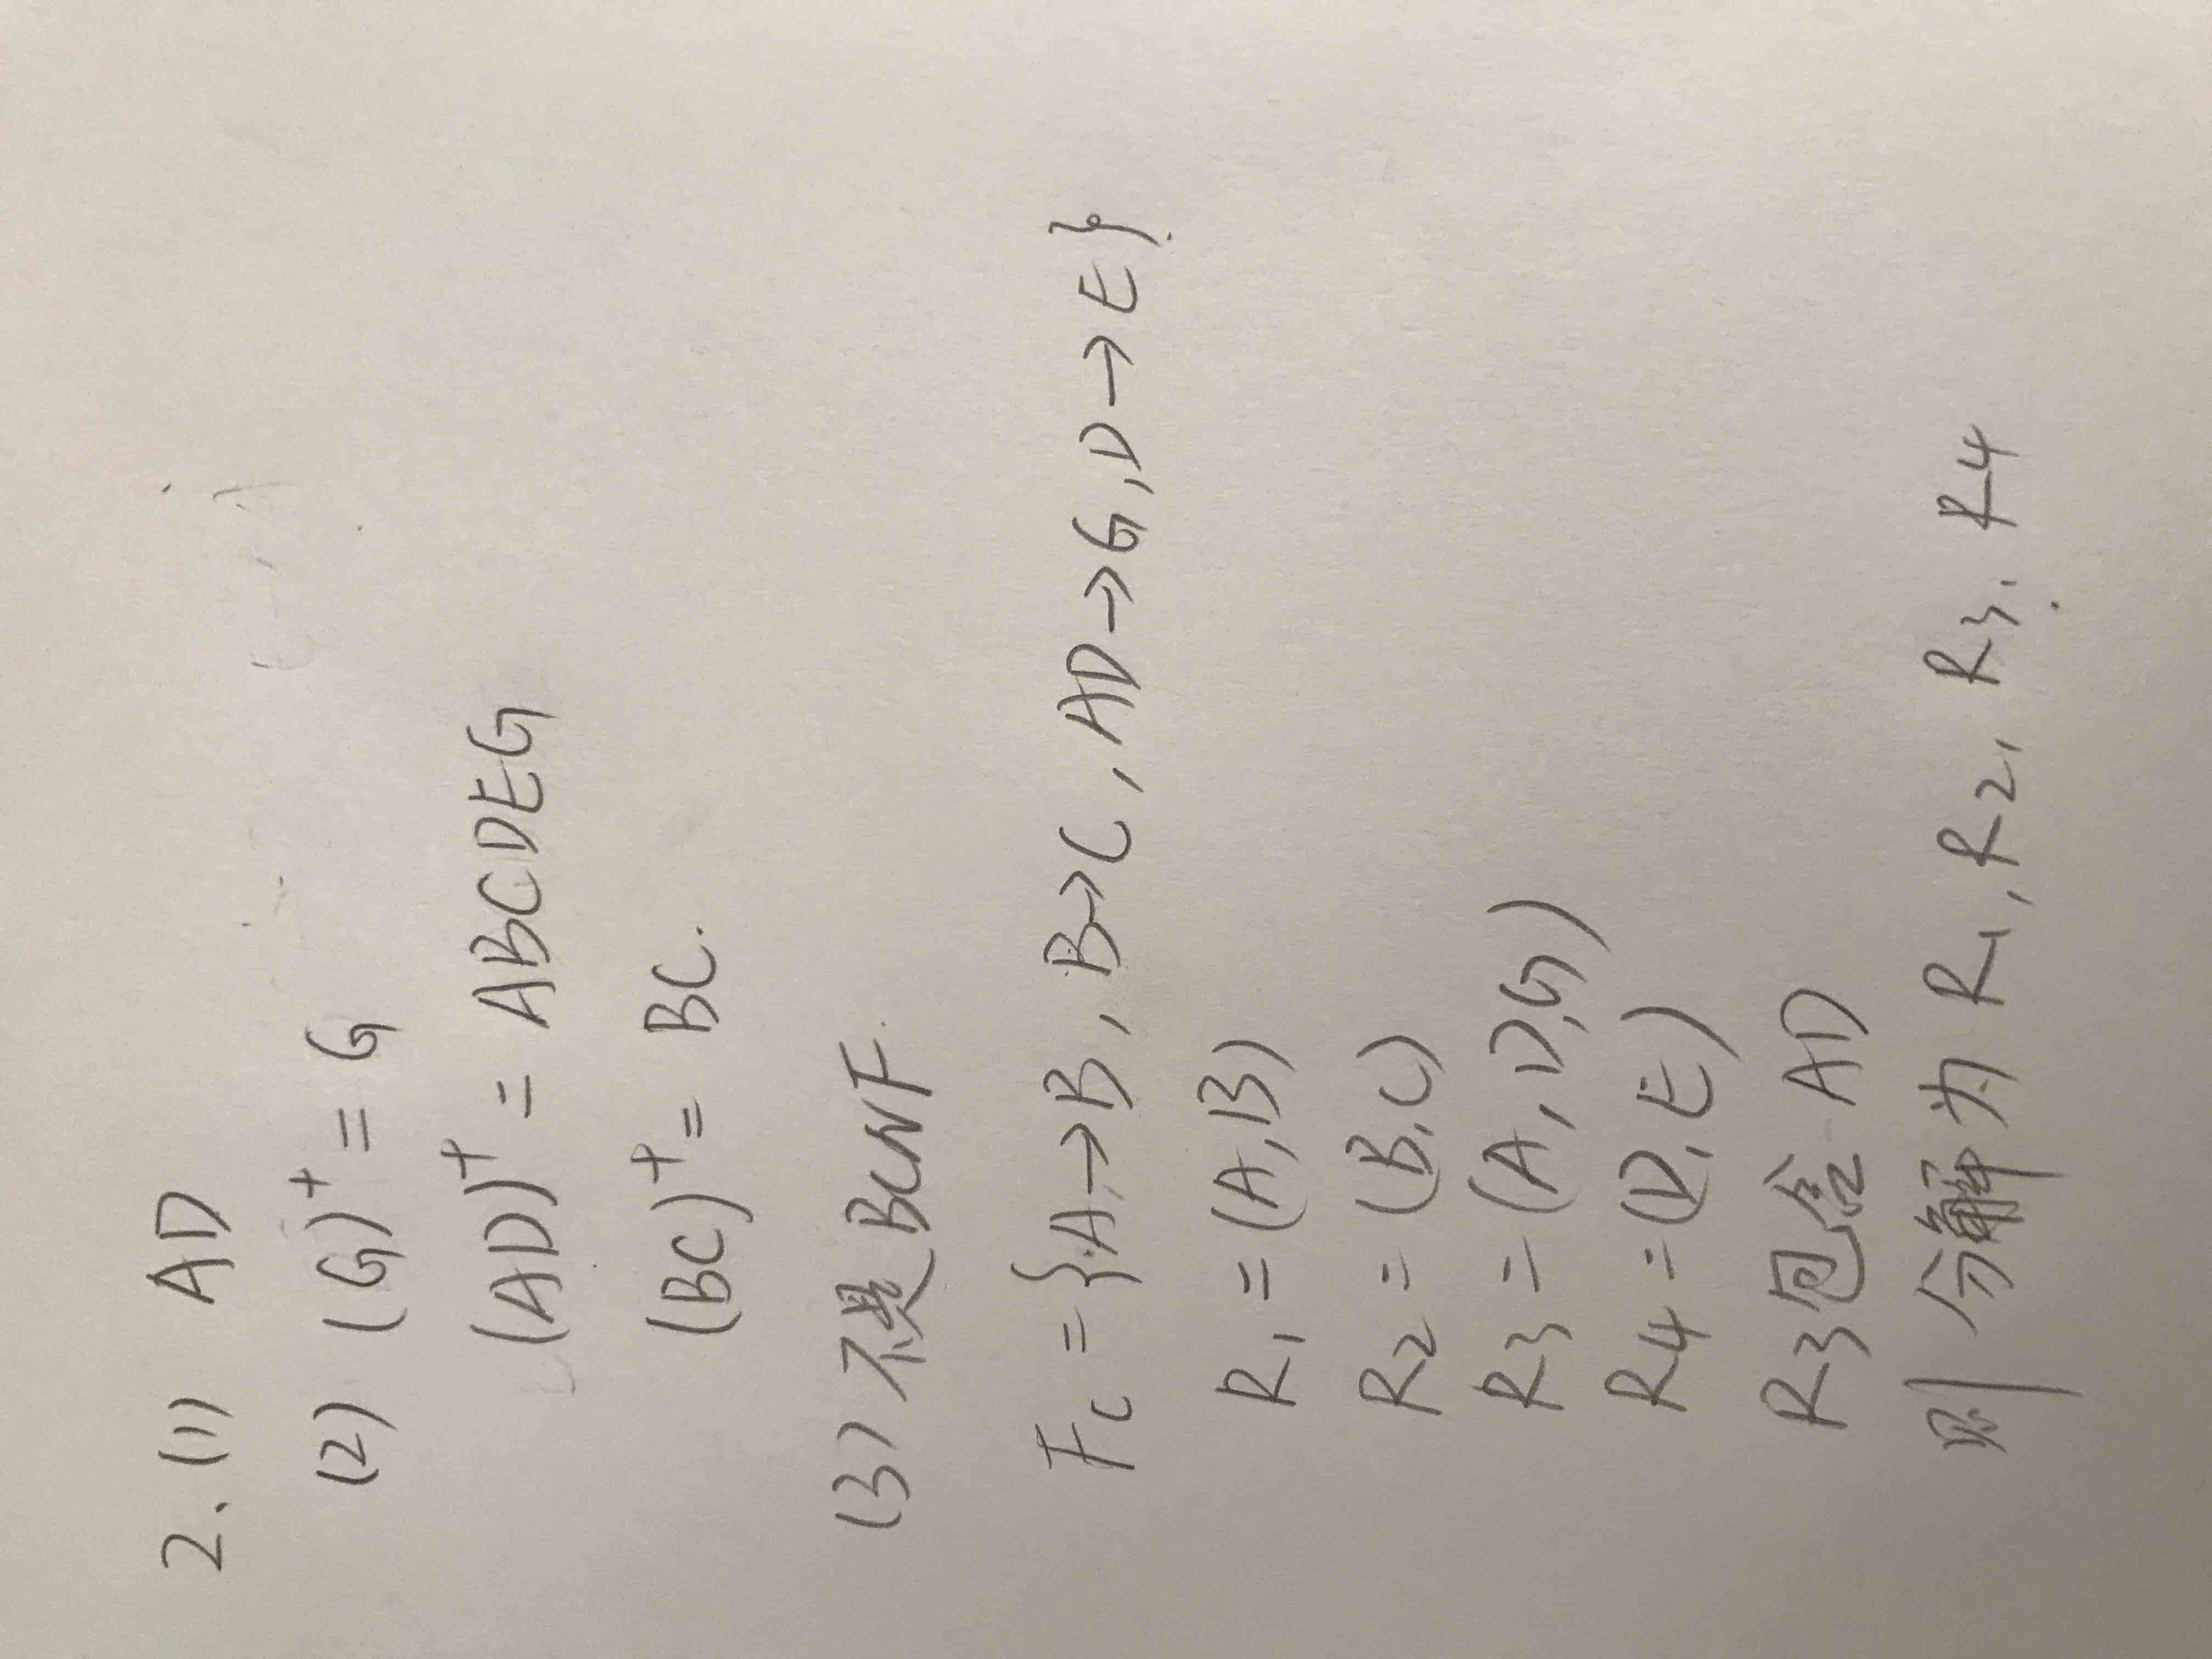 2、(1) AD
(2) (G)⁺ = G
(AD)⁺ = ABCDEG
(BC)⁺ = BC.
(3) 不是BCNF.
Fc = {A→B, B→C, AD→G, D→E}
R₁ = (A,B)
R₂ = (B,C)
R₃ = (A,D,G)
R₄ = (D,E)
R₃包含 AD
则 分解为 R₁, R₂, R₃, R₄